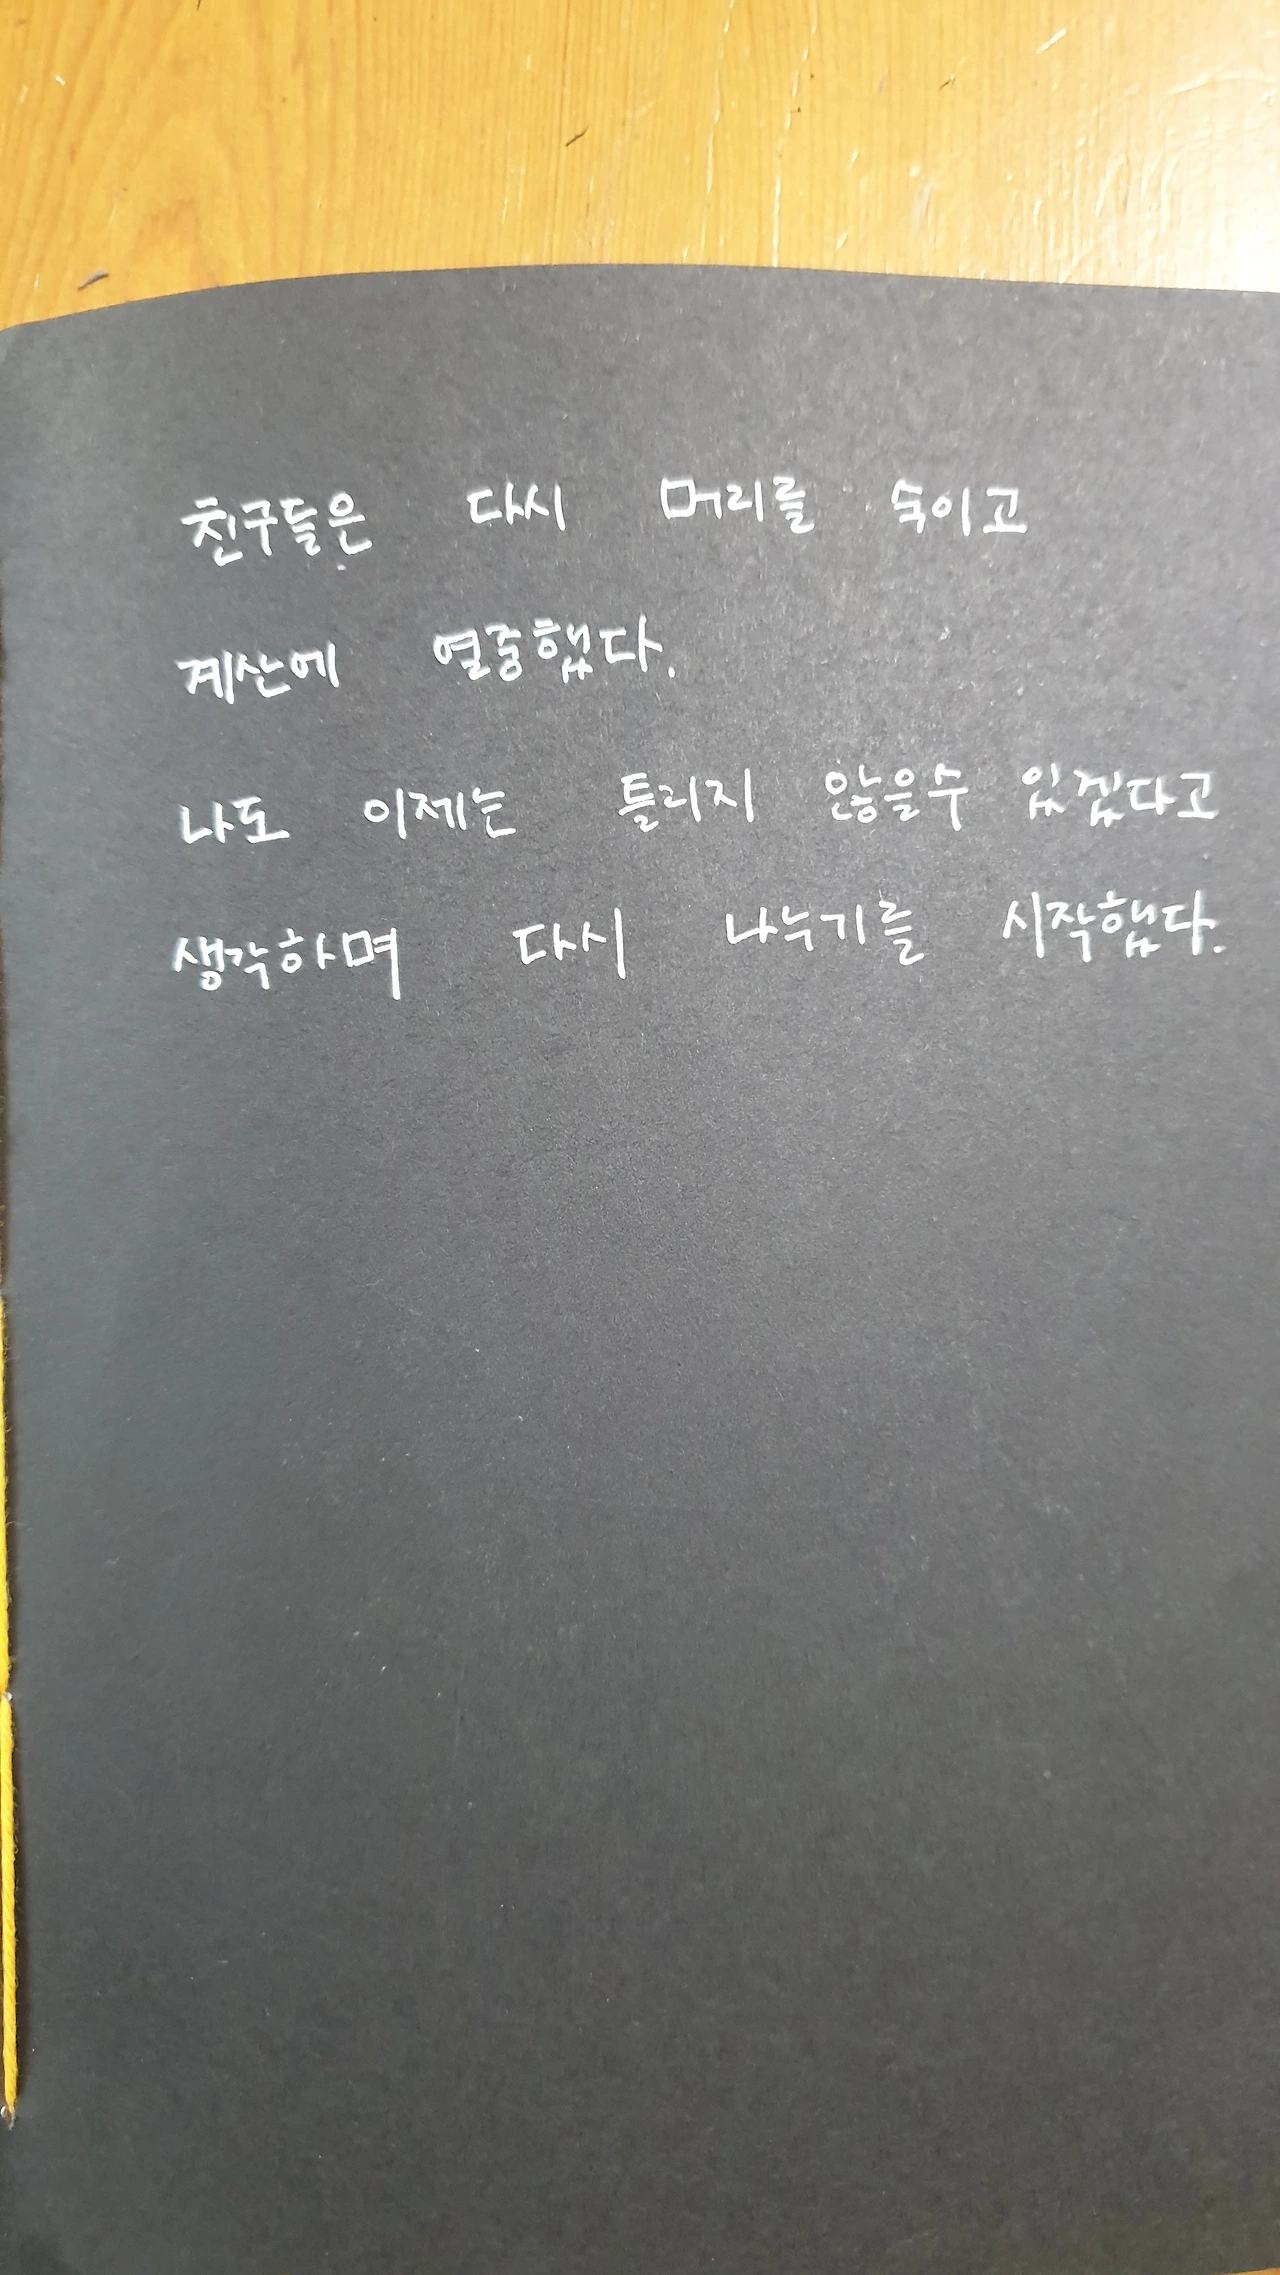 친구들은 다시 머리를 숙이고
계산에 열중했다.
나도 이제는 틀리지 않을수 있겠다고
생각하며 다시 나누기를 시작했다.